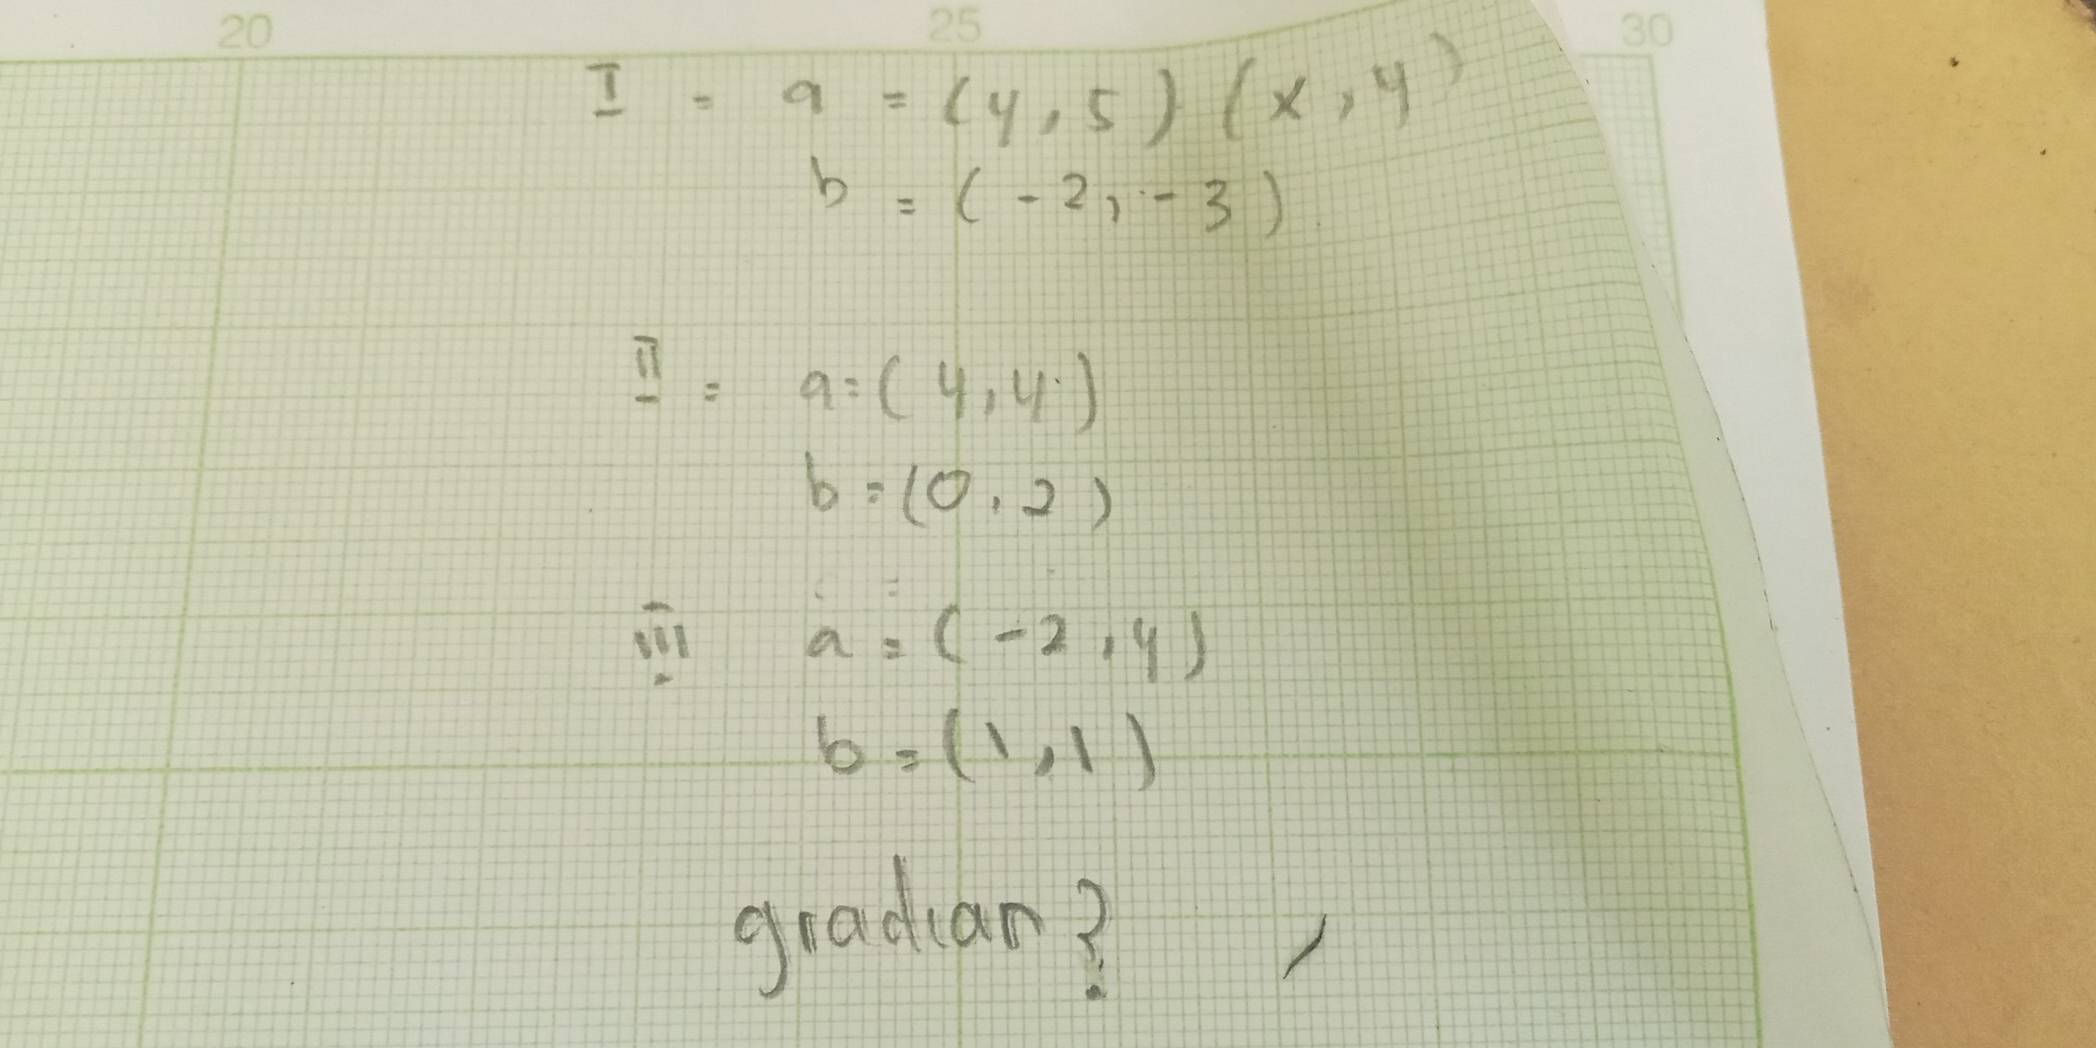 20 25 30
I = a = (4, 5) (x, y)
b = (-2, -3)
II = a = (4, 4)
b = (0, 2)
III a = (-2, 4)
b = (1, 1)
gradian?